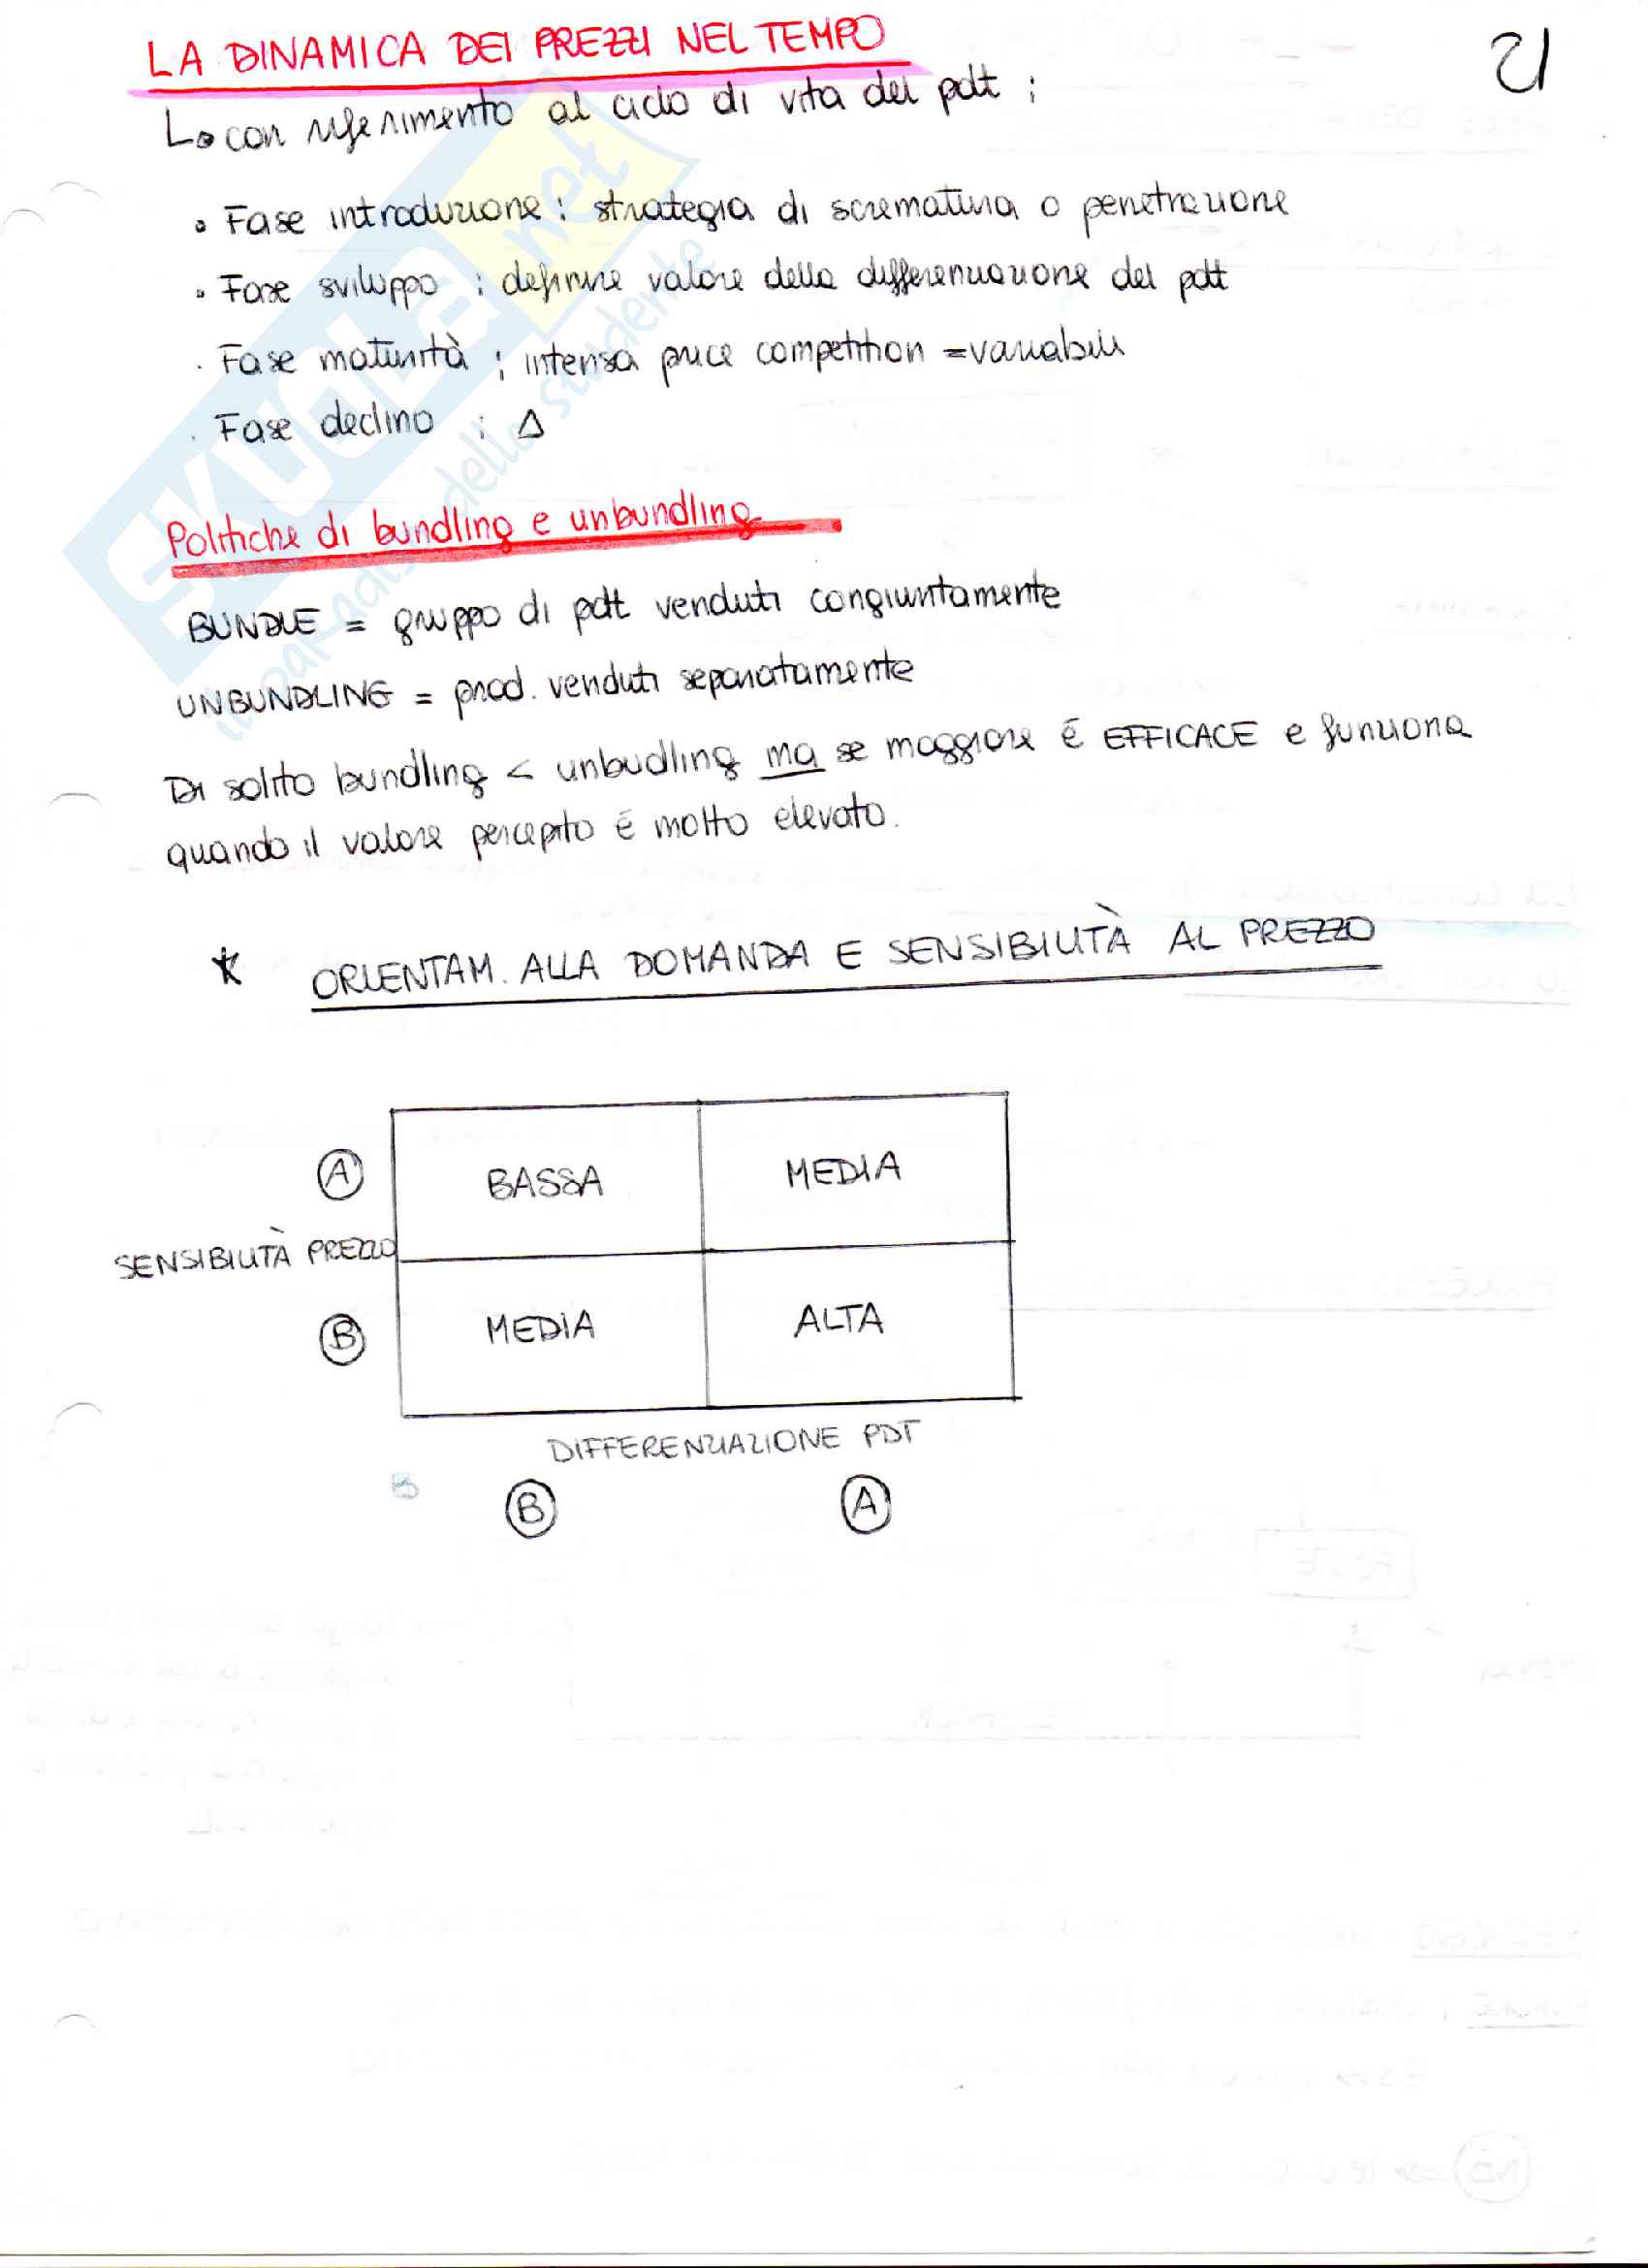 LA DINAMICA DEI PREZZI NEL TEMPO
21
L> con riferimento al ciclo di vita del pdt :
• Fase introduzione : strategia di scrematura o penetrazione
• Fase sviluppo : definire valore della differenziazione del pdt
• Fase maturità : intensa price competition = variabili
• Fase declino : Δ
Politiche di bundling e unbundling
BUNDLE = gruppo di pdt venduti congiuntamente
UNBUNDLING = prod. venduti separatamente
Di solito bundling < unbudling ma se maggiore é EFFICACE e funziona
quando il valore percepito é molto elevato.
* ORIENTAM. ALLA DOMANDA E SENSIBILITÀ AL PREZZO
A BASSA MEDIA
SENSIBILITÀ PREZZO
B MEDIA ALTA
DIFFERENZIAZIONE PDT
B A
SKUOLA.net
il paradiso dello studente